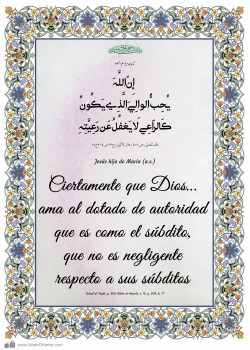 إِنَّ اللَّهَ
يُحِبُّ الْوَالِيَ الَّذِي يَكُونُ
كَالرَّاعِي لَا يَغْفُلُ عَنْ رَعِيَّتِهِ
Jesús hijo de María (a.s.)
Ciertamente que Dios...
ama al dotado de autoridad
que es como el súbdito,
que no es negligente
respecto a sus súbditos
www.IslamOriente.com